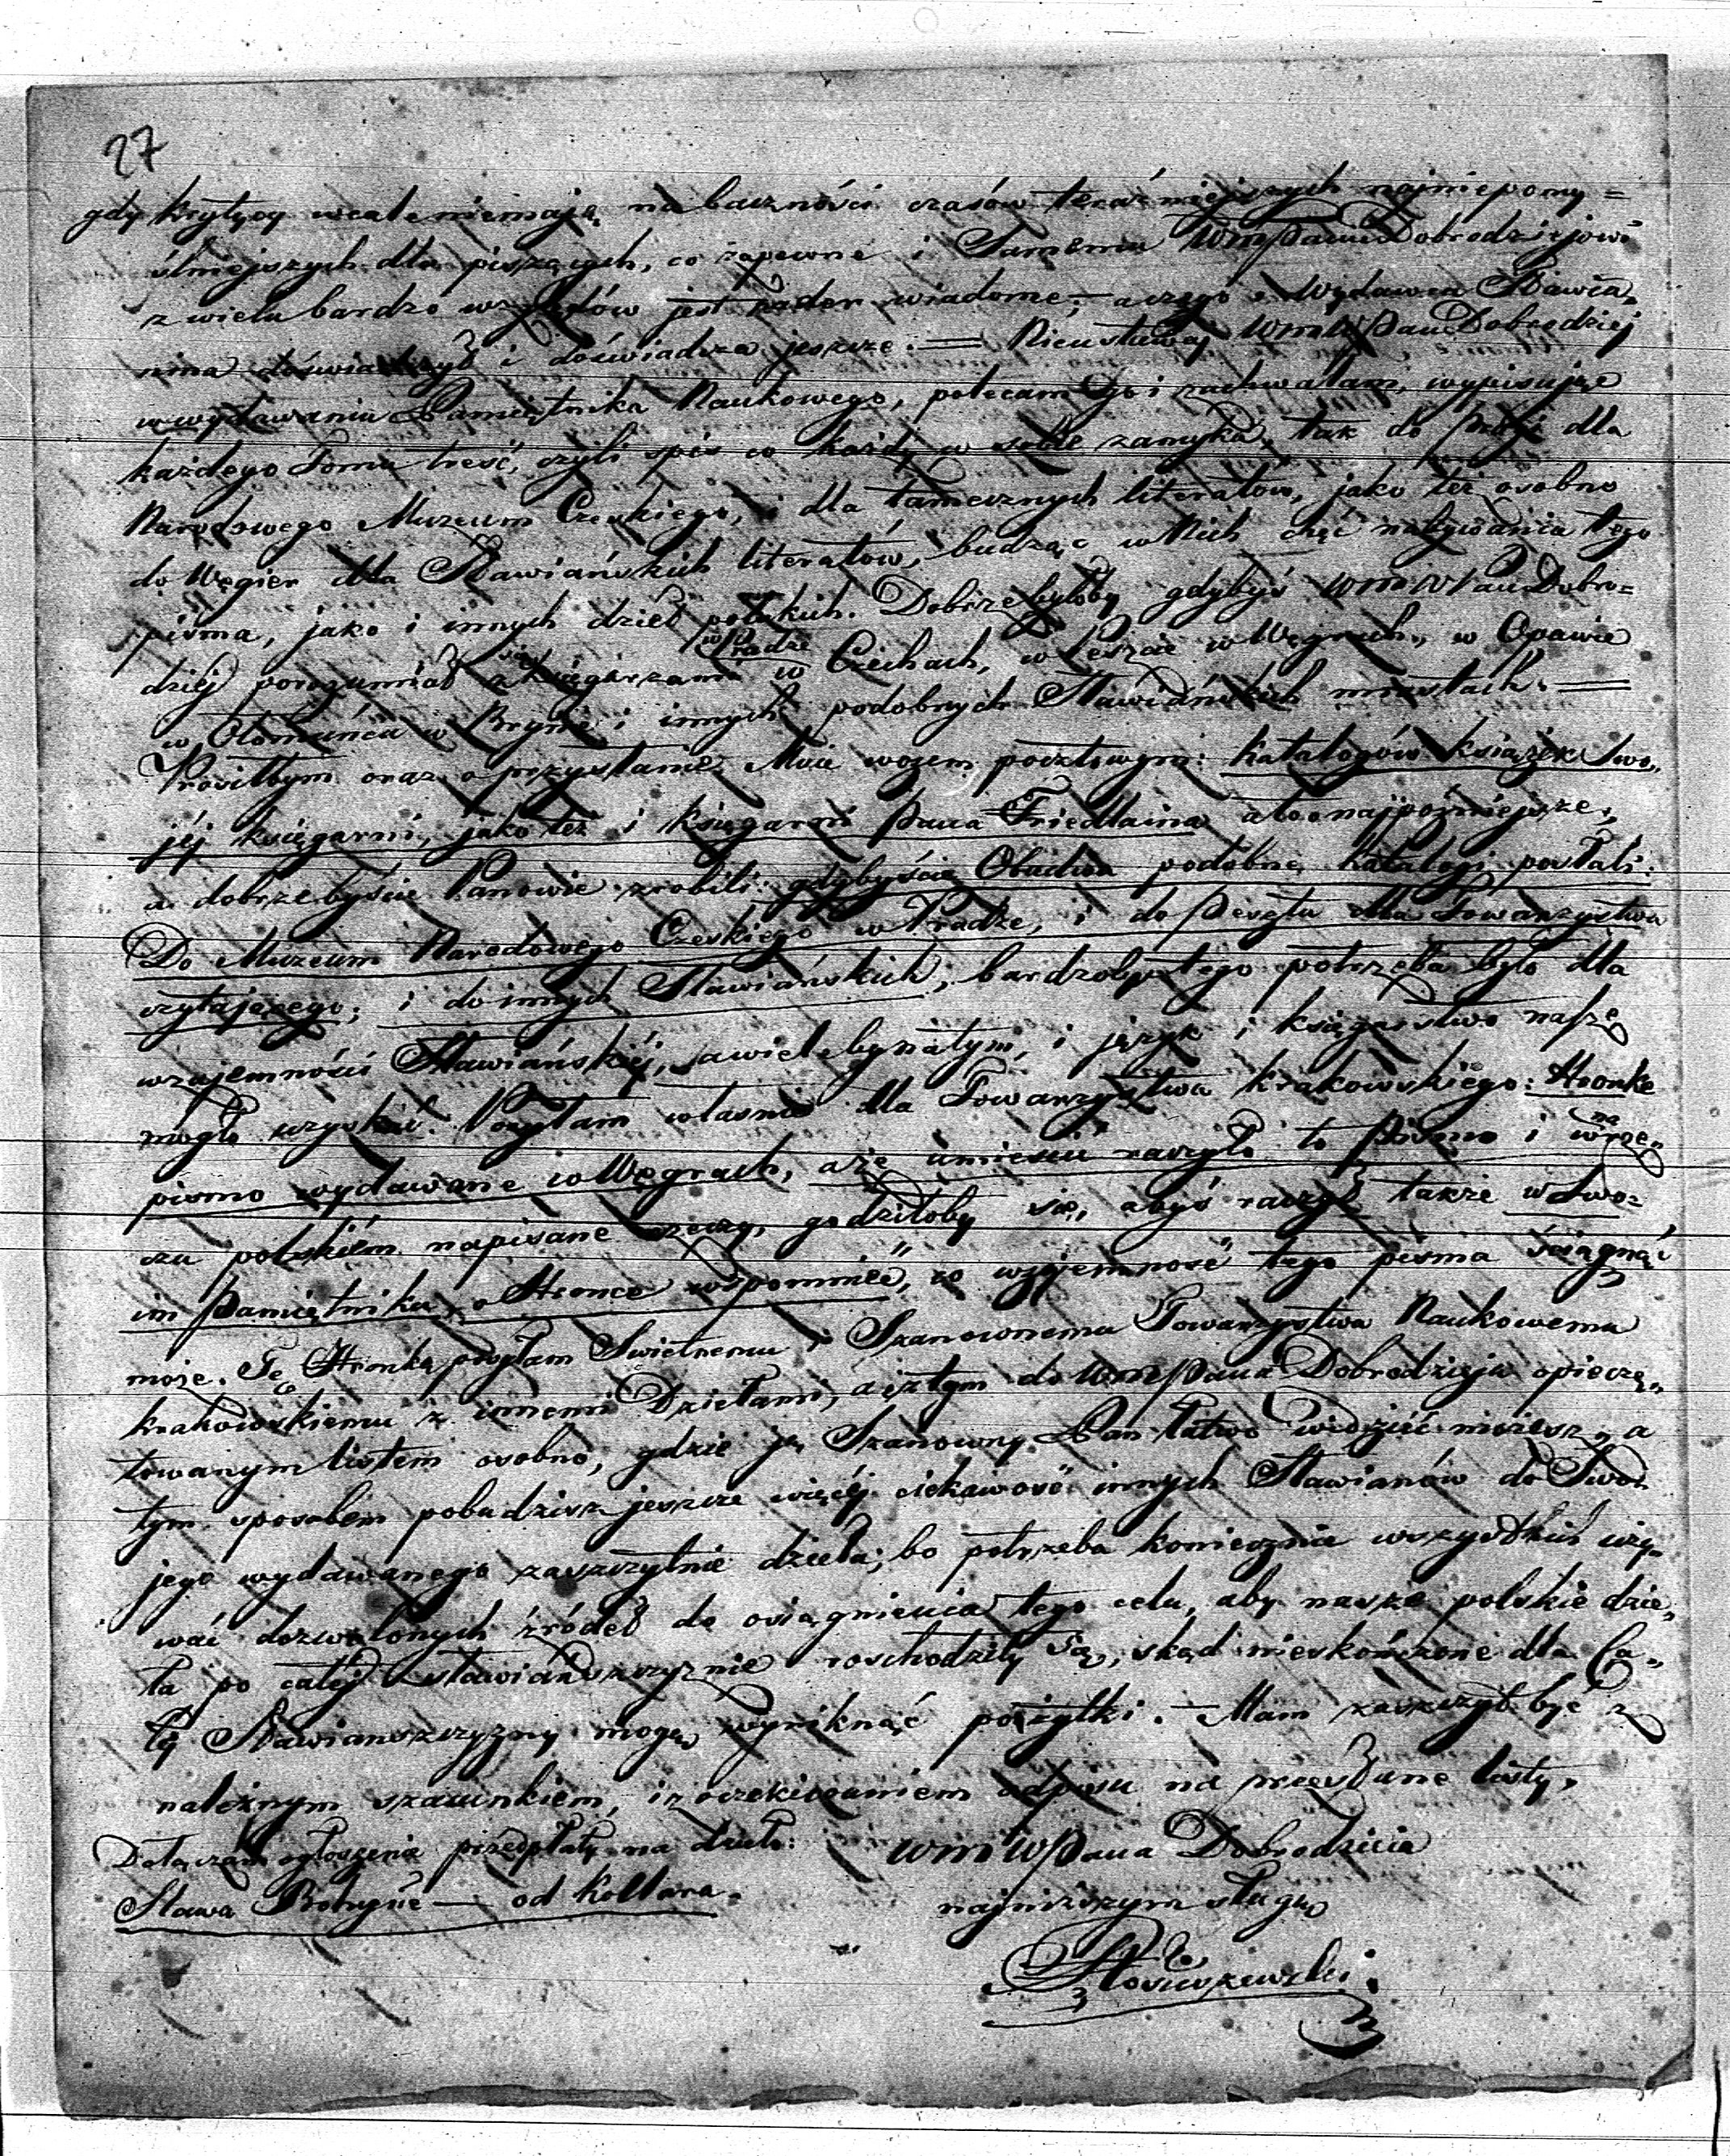 27
gdy krytycy wcale niemają na baczności czasów teraźniejszych najniepomy=
ślniejszych dla piszących, co zapewne i Samemu WmPanu Dobrodziejowi
z wielu bardzo względów jest nader wiadome; a czego i Wydawca Sławia„
nina doświadczył i doświadcza jeszcze. — Nieustawaj WmWPan Dobrodziej
w wydawaniu Pamiętnika Naukowego, polecam Go i zachwalam, wypisując
każdego Tomu treść, czyli spis co każdy w sobie zamyka, tak do Pragi dla
Narodowego Muzeum Czeskiego, i dla tamecznych literatów, jako też osobno
do Węgier dla Sławiańskich literatów, budząc w Nich chęć nabywania tego
pisma, jako i innych dzieł polskich. Dobrze byłoby gdybyś WmWPan Dobro=
dziej porozumiał się z księgarzami w Pradze w Czechach, w Peszcie w Węgrzech, w Opawie
w Ołomuńcu w Brynie i innych podobnych Sławiańskich miastach. —
Prosiłbym oraz o przysłanie Mnie wozem pocztowym: katalogów książek Swo„
jéj księgarni, jako też i księgarni Pana Friedlaina a to najpóźniejsze,
a dobrze byście Panowie zrobili: gdybyście Obadwa podobne katalogi posłali:
Do Muzeum Narodowego Czeskiego w Pradze, i do Pesztu dla Towarzystwa
czytającego; i do innych Sławiańskich, bardzoby tego potrzeba było dla
wzajemności Sławiańskiéj, a wiele by na tym, i język i księgarstwo nasze
mogło uzyskać. Posyłam własnie dla Towarzystwa Krakowskiego: Hronke
pismo wydawane w Węgrach, a że umieścić raczyło to Pismo i na wrze„
czu polskiém napisane rzeczy, godziłoby się, abyś raczył także w Swo=
im Pamiętniku o Hronce wspomnieć, co wzajemność tego pisma ściągnąć
może. Tę Hronkę posyłam Swietnemu i Szanownemu Towarzystwu Naukowemu
Krakowskiemu z innemi Dziełami, a i z tym do WmPana Dobrodzieja opieczę„
towanym listem osobno, gdzie ją Szanowny Pan łatwo widzieć możesz, a
tym sposobem pobudzisz jeszcze więcéj ciekawość innych Sławianów do Swo=
jego wydawanego zaszczytnie dzieła; bo potrzeba koniecznie wszystkich uży„
wać dozwolonych źródeł do osiągnienia tego celu, aby nasze polskie dzie„
ła po całéj sławiańszczyznie roschodziły się, skąd nieskończone dla Ca„
łéj Sławianszczyzny mogą wyniknąć pożytki. — Mam zaszczyt być z
należnym szacunkiem, i z oczekiwaniem odpisu na przesłane listy,
Dołączam ogłoszenie przedpłaty na dzieło:
Sława Bohyně — od Kollara.
WmWPana Dobrodzieja
najniższym sługą